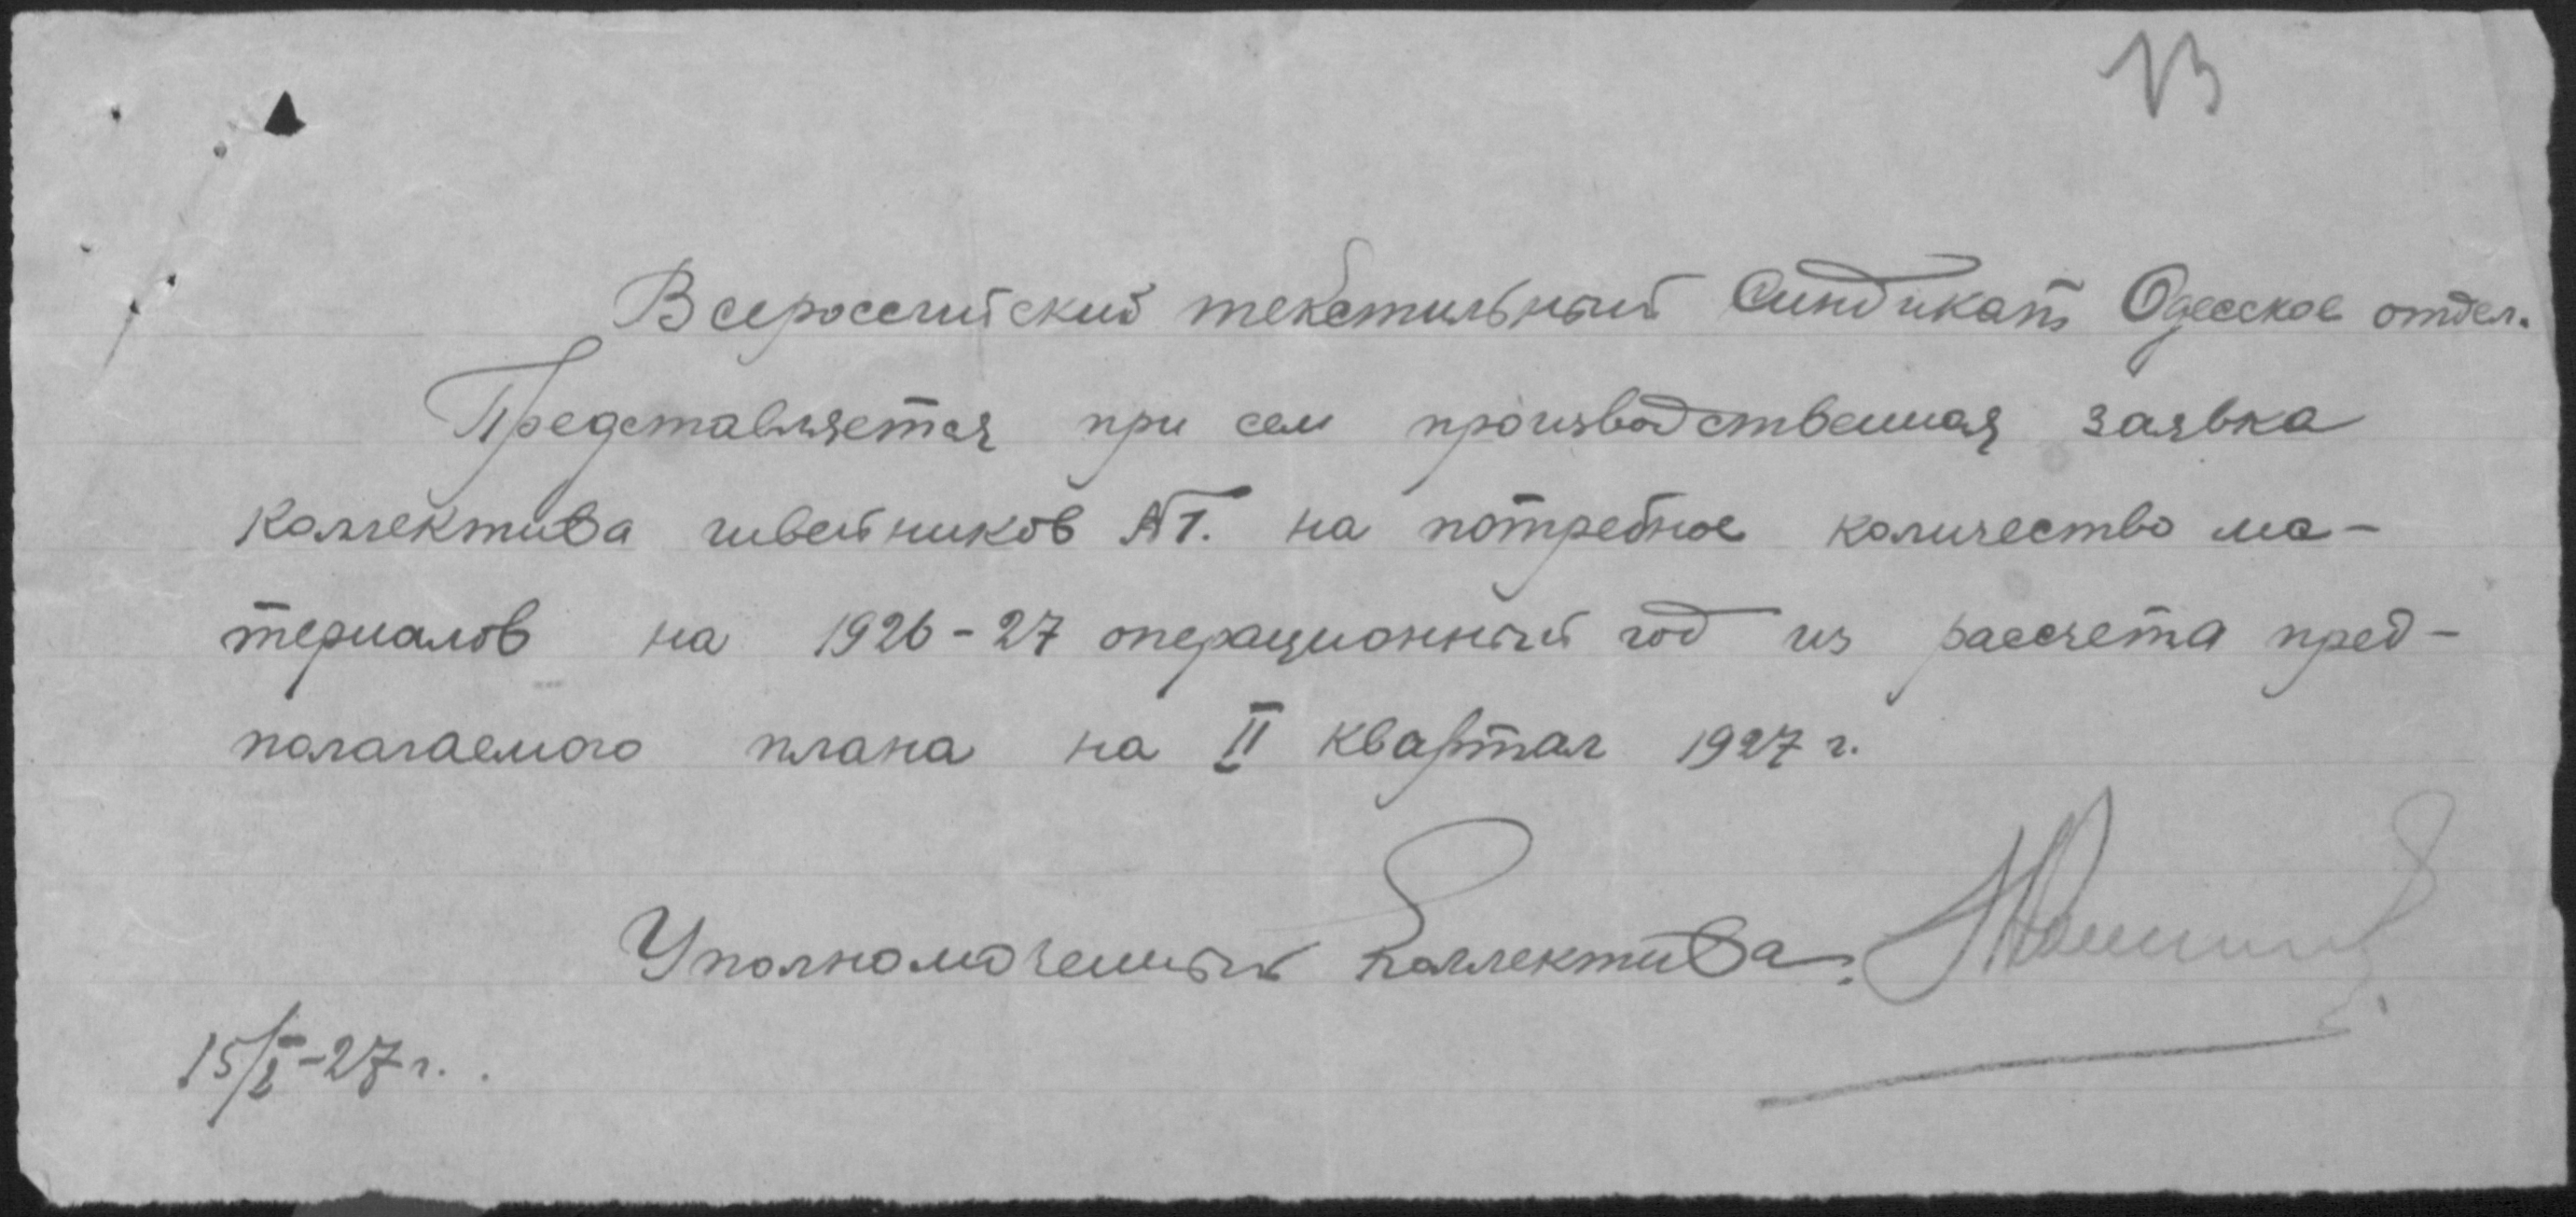 13
Всероссийский текстильный Синдикат Одесское отдел.
Представляется при сем производственная заявка
коллектива швейников №1. на потребное количество ма-
териалов на 1926-27 операционный год из рассчета пред-
полагаемого плана на II квартал 1927 г.
Уполномоченный Коллектива
15/I-27 г.